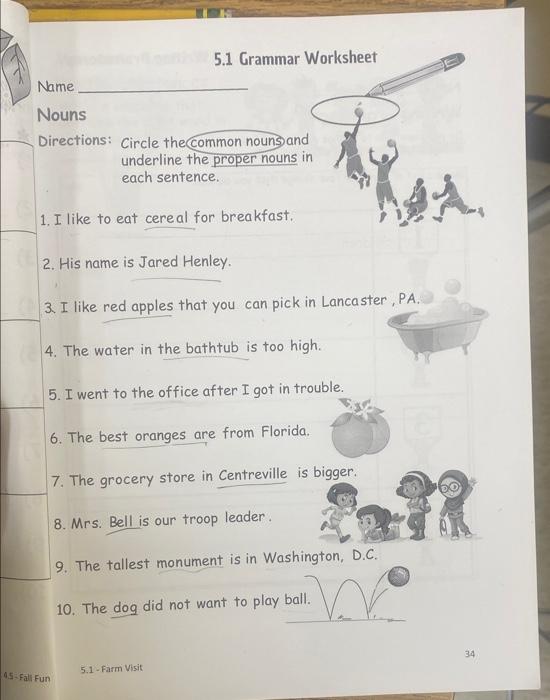 5.1 Grammar Worksheet
Name
Nouns
Directions: Circle the common nouns and
underline the proper nouns in
each sentence.
1. I like to eat cereal for breakfast.
2. His name is Jared Henley.
3. I like red apples that you can pick in Lancaster, PA.
4. The water in the bathtub is too high.
5. I went to the office after I got in trouble.
6. The best oranges are from Florida.
7. The grocery store in Centreville is bigger.
8. Mrs. Bell is our troop leader.
9. The tallest monument is in Washington, D.C.
10. The dog did not want to play ball.
34
5.1 - Farm Visit
4.5 - Fall Fun